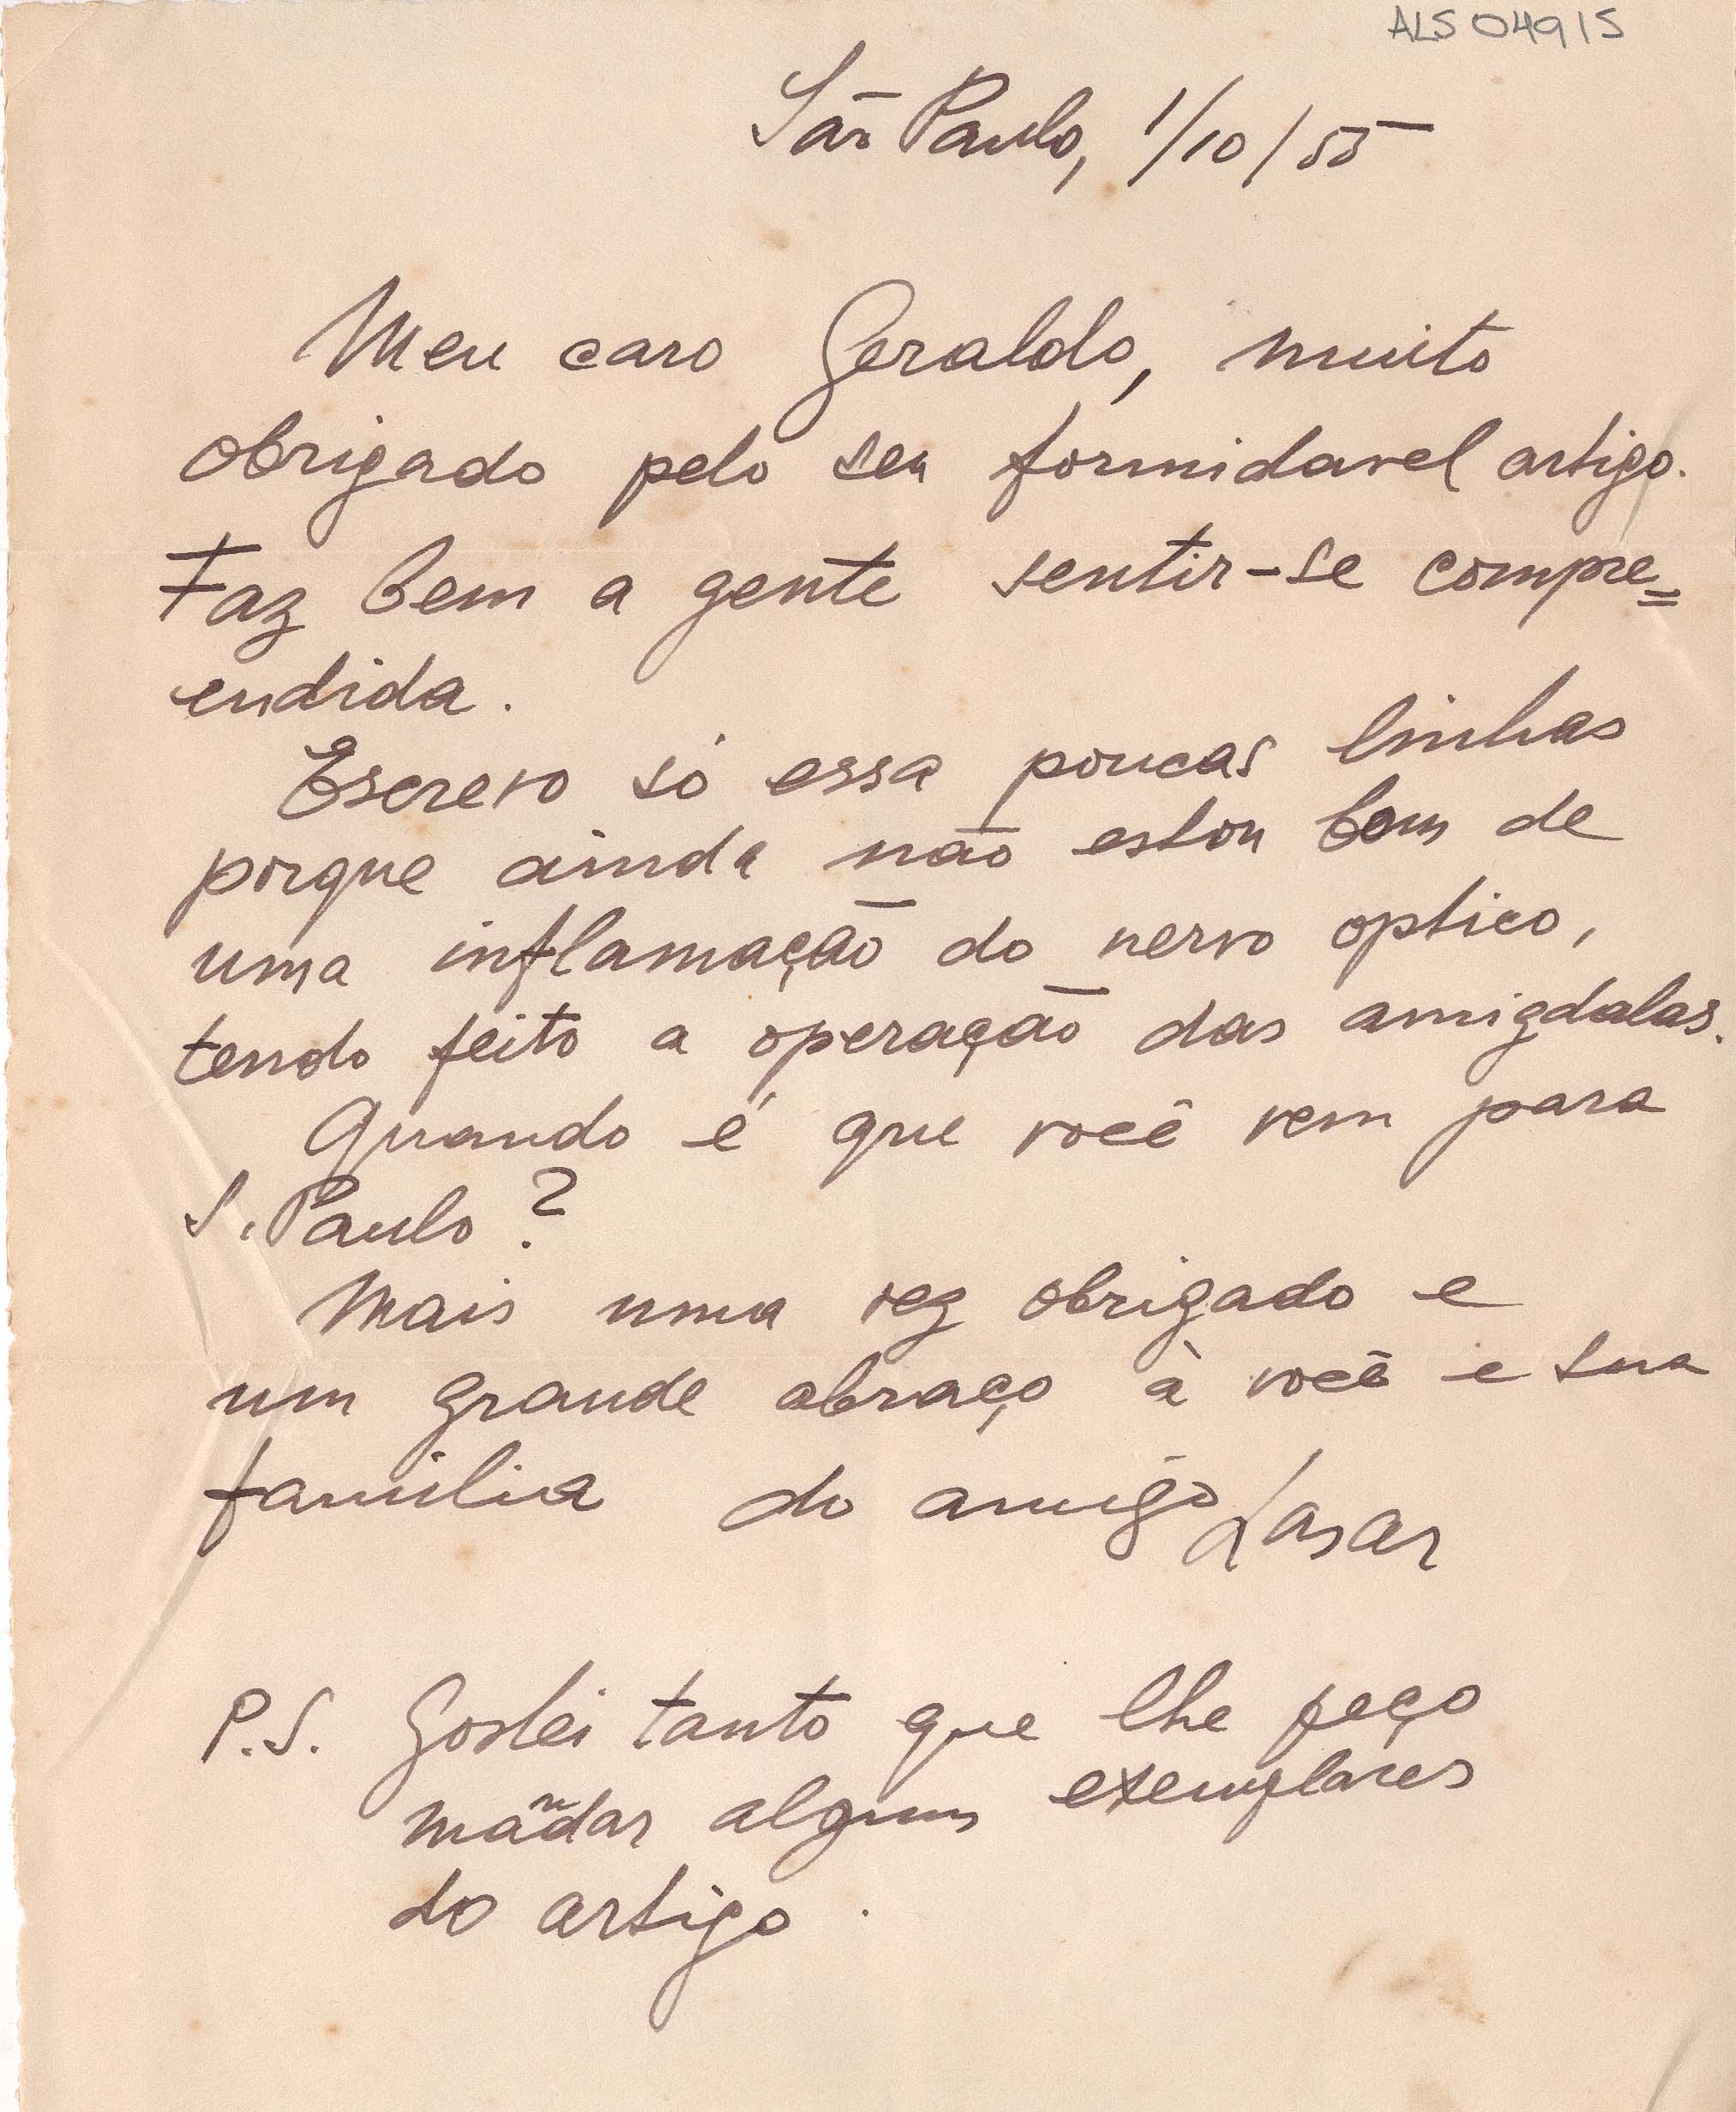 ALS 04915
São Paulo, 1/10/55
Meu caro Geraldo, muito
obrigado pelo seu formidavel artigo.
Faz bem a gente sentir-se compre=
endida.
Escrevo só essa poucas linhas
porque ainda não estou bom de
uma inflamação do nervo optico,
tendo feito a operação das amigdalas.
Quando é que você vem para
S. Paulo?
Mais uma vez obrigado e
um grande abraço à você e sua
familia do amigo Lasar
P.S. Gostei tanto que lhe peço
mandar alguns exemplares
do artigo.